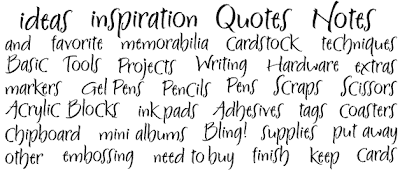 ideas inspiration Quotes Notes
and favorite memorabilia Cardstock techniques
Basic Tools Projects Writing Hardware extras
markers Gel Pens Pencils Pens Scraps Scissors
Acrylic Blocks ink pads Adhesives tags Coasters
Chipboard mini albums Bling! supplies put away
other embossing need to buy finish keep Cards